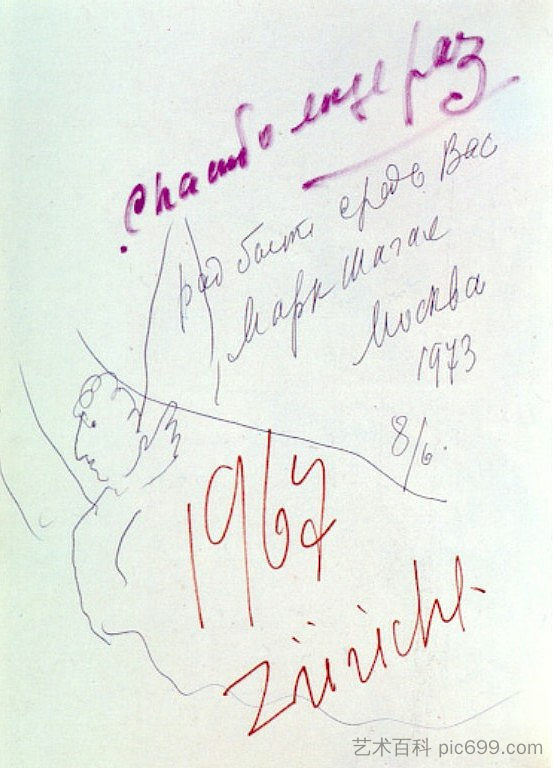 Спасибо еще раз
рад быть среди Вас
Марк Шагал
Москва
1973
8/6.
1967
Zürich.
艺术百科 pic699.com